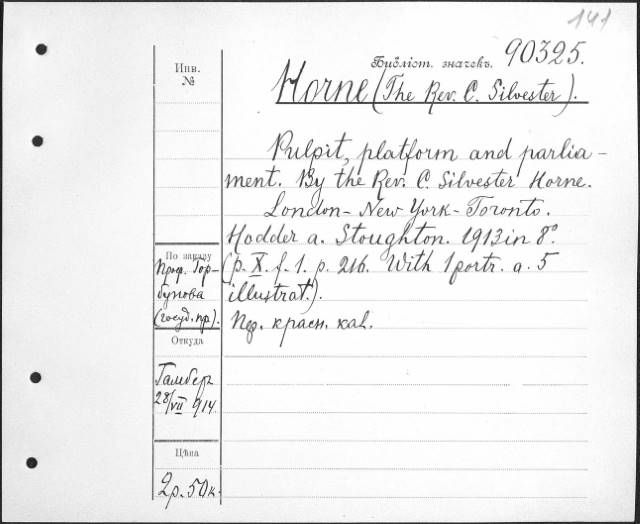 141
Библіот. значекъ. 90325.
Инв.
№
Horne (The Rev. C. Silvester).
Pulpit, platform and parlia-
ment. By the Rev. C. Silvester Horne.
London - New York - Toronto.
Hodder a. Stoughton. 1913 in 8°.
(p. X. f. 1. p. 216. With 1 portr. a. 5
illustrat.).
Пер. красн. кал.
По заказу
Проф. Гор-
бунова
(госуд. пр.).
Откуда
Гамбер
28/VII 914.
Цѣна
2р. 50к.